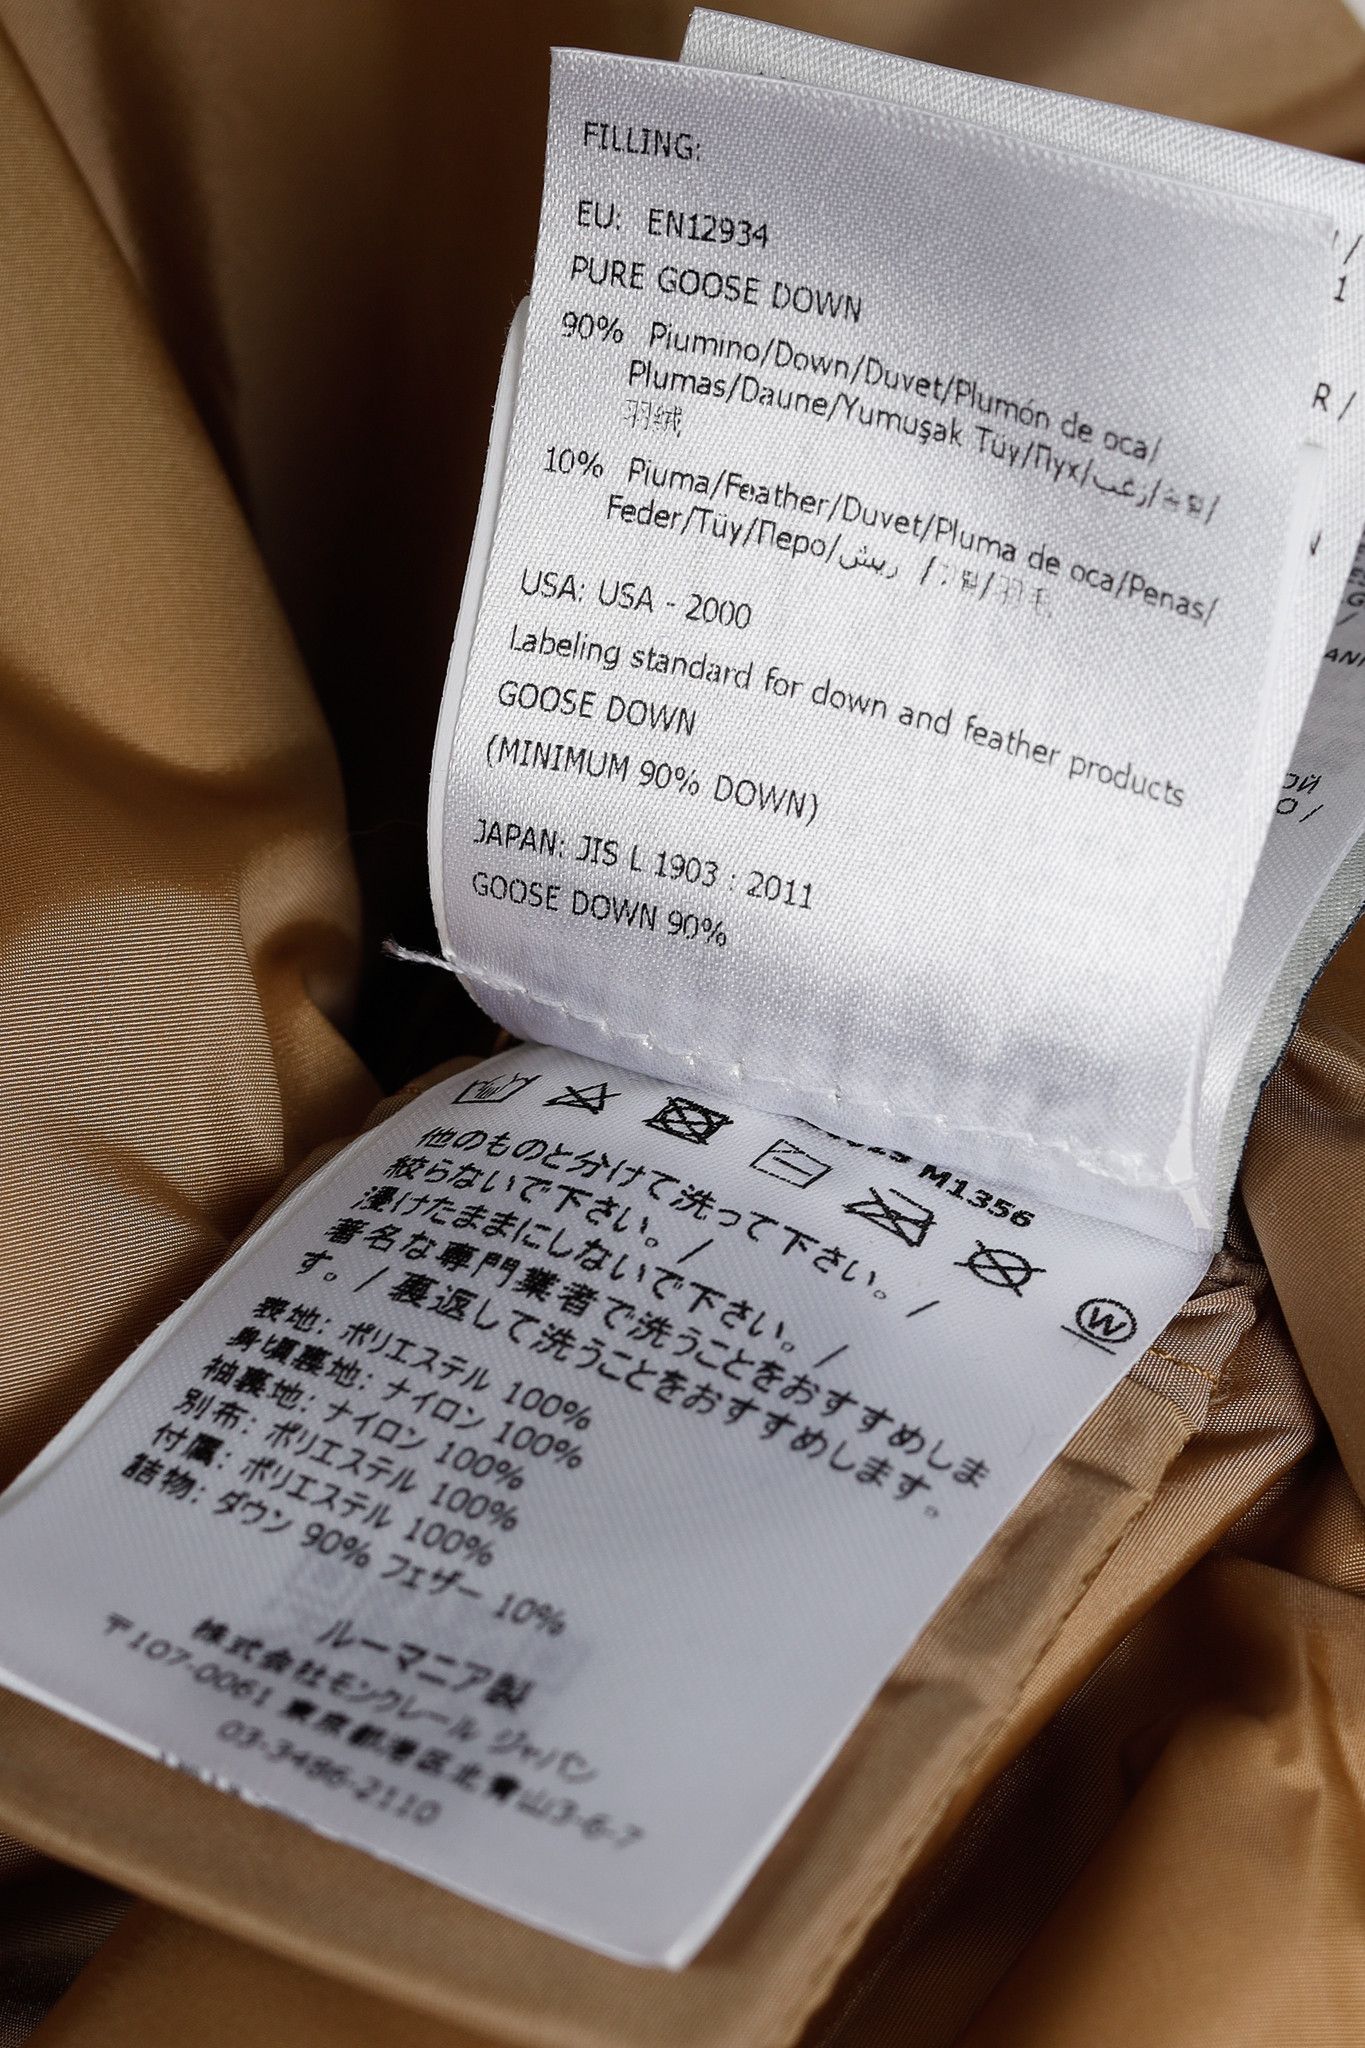 FILLING:
EU: EN12934
PURE GOOSE DOWN
90% Piumino/Down/Duvet/Plumón de oca/
Plumas/Daune/Yumuşak Tüy/Пух/زغب/솜털/
羽绒
10% Piuma/Feather/Duvet/Pluma de oca/Penas/
Feder/Tüy/Перо/ريش /깃털/羽毛
USA: USA - 2000
Labeling standard for down and feather products
GOOSE DOWN
(MINIMUM 90% DOWN)
JAPAN: JIS L 1903 : 2011
GOOSE DOWN 90%
M1356
W
他のものと分けて洗って下さい。/
絞らないで下さい。/
浸けたままにしないで下さい。/
著名な専門業者で洗うことをおすすめしま
す。/ 裏返して洗うことをおすすめします。
表地: ポリエステル 100%
身頃裏地: ナイロン 100%
袖裏地: ナイロン 100%
別布: ポリエステル 100%
付属: ポリエステル 100%
詰物: ダウン 90% フェザー 10%
ルーマニア製
株式会社モンクレール ジャパン
〒107-0061 東京都港区北青山3-6-7
03-3486-2110